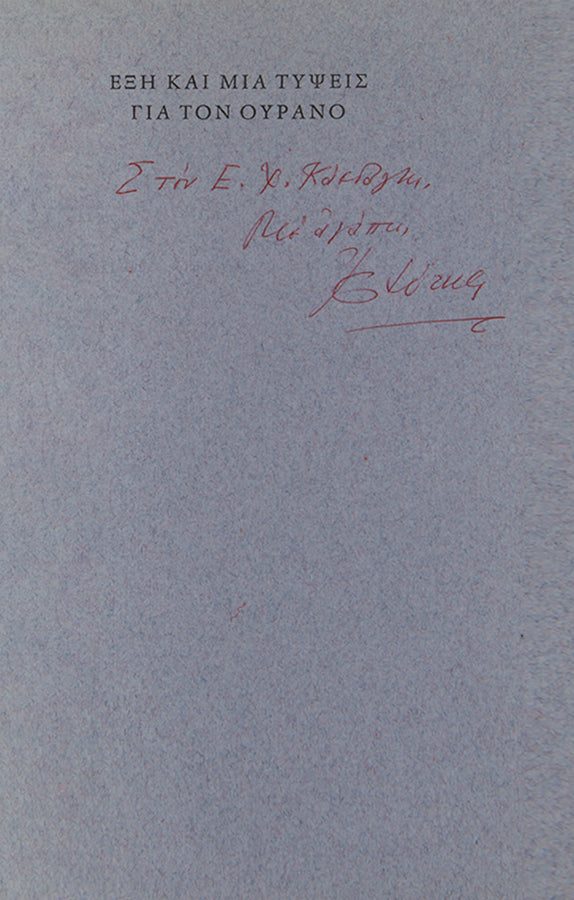 ΕΞΗ ΚΑΙ ΜΙΑ ΤΥΨΕΙΣ
ΓΙΑ ΤΟΝ ΟΥΡΑΝΟ
Στόν Ε. Χ. Κάσδαγλη,
Μέ ἀγάπη,
Ἐλύτης